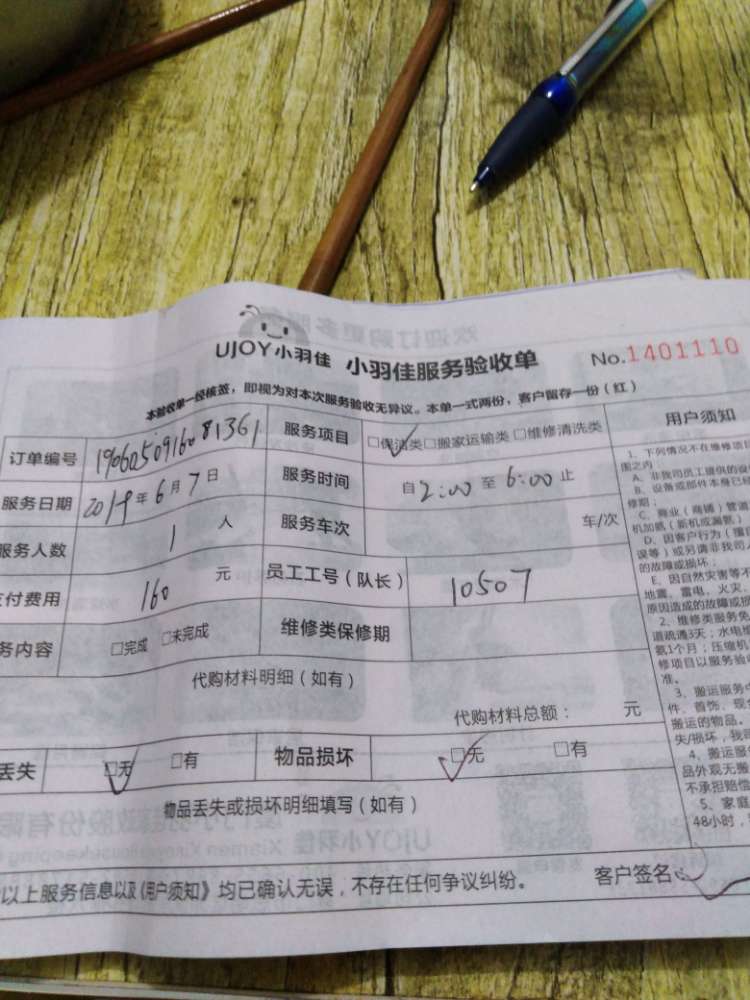 UJOY小羽佳 小羽佳服务验收单 No.1401110
本验收单一经核签，即视为对本次服务验收无异议。本单一式两份，客户留存一份（红）
订单编号 1906050916081361 服务项目 □保洁类 □搬家运输类 □维修清洗类
服务日期 2019年6月7日 服务时间 自2:00至6:00止
服务人数 1 人 服务车次 车/次
付费用 160 元 员工工号（队长） 10507
务内容 □完成 □未完成 维修类保修期
代购材料明细（如有）
代购材料总额： 元
丢失 □无 □有 物品损坏 □无 □有
物品丢失或损坏明细填写（如有）
以上服务信息以及《用户须知》均已确认无误，不存在任何争议纠纷。 客户签名：
用户须知
1、下列情况不在维修项目
围之内
A、非我司员工提供的设
B、设备或部件本身已
修期；
C、商业（商铺）管道
机加氨（新机或漏氨）
D、因客户行为（擅
误等）或另请非我司
的故障或损坏；
E、因自然灾害等不
地震、雷电、火灾、
原因造成的故障或损
2、维修类服务免
道疏通3天；水电维
氨1个月；压缩机
修项目以服务验收
准。
3、搬运服务中
件、首饰、现金
搬运的物品。
失/损坏，我
4、搬运服
品外观无搬
不承担赔偿
5、家庭
48小时，